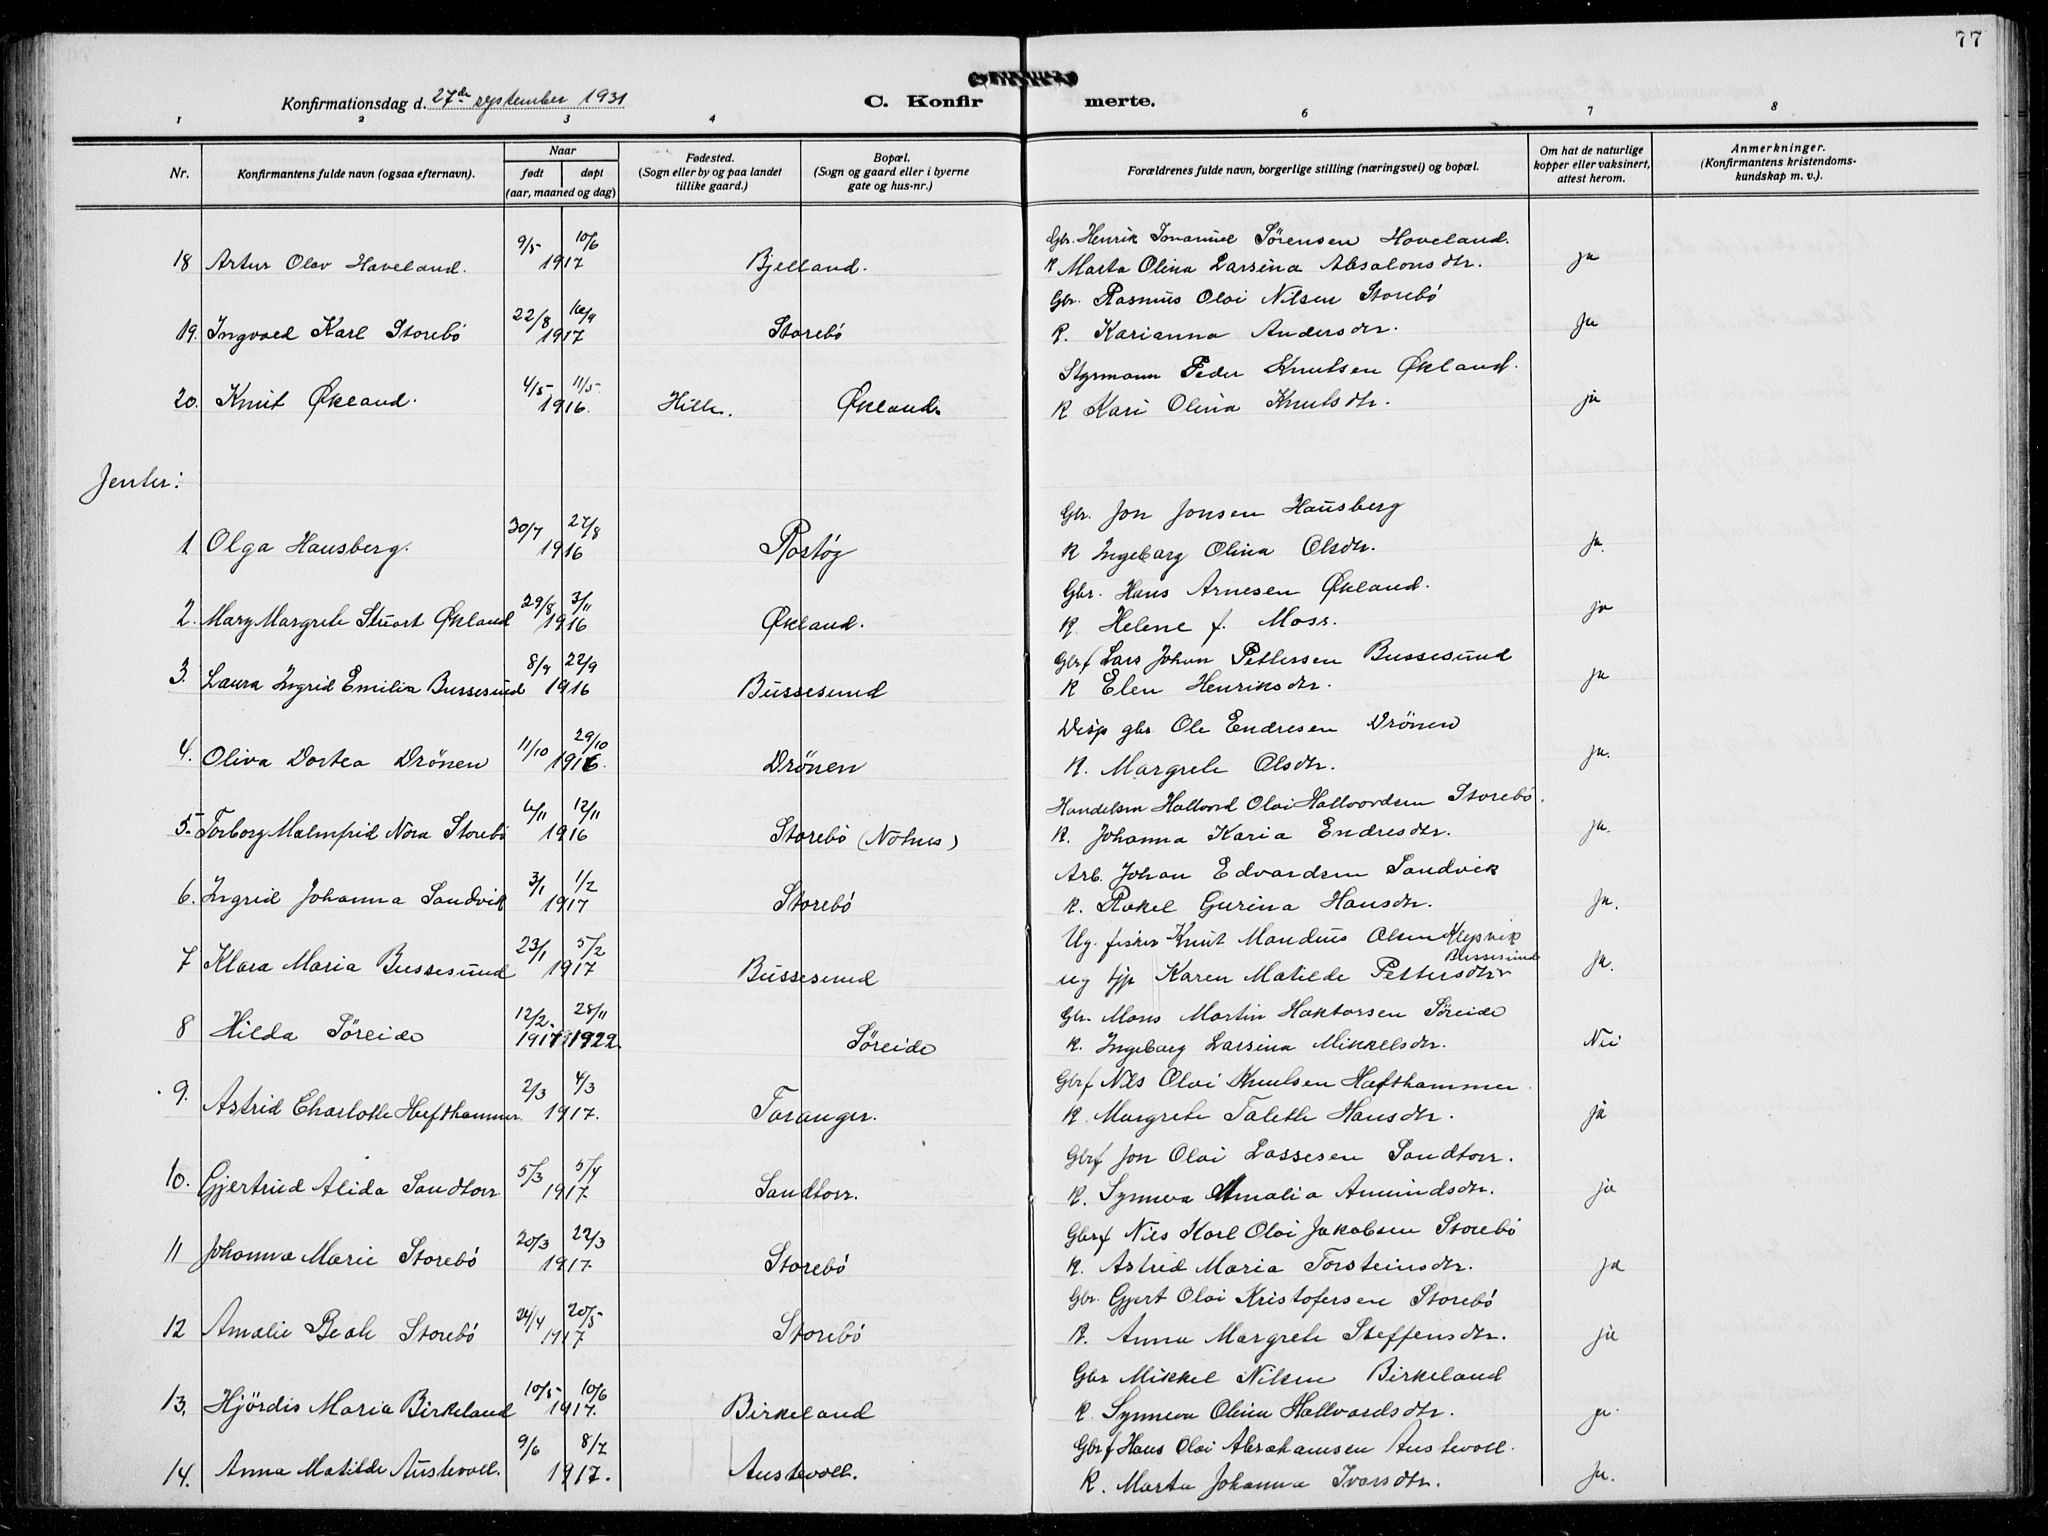 77
Konfirmationsdag d. 27de september 1931
C. Konfirmerte.
1 2 3 4 6 7 8
Nr.
Konfirmantens fulde navn (ogsaa efternavn).
Naar
født døpt
(aar, maaned og dag)
Fødested.
(Sogn eller by og paa landet
tillike gaard.)
Bopæl.
(Sogn og gaard eller i byerne
gate og hus-nr.)
Forældrenes fulde navn, borgerlige stilling (næringsvei) og bopæl.
Om hat de naturlige
kopper eller vaksinert,
attest herom.
Anmerkninger.
(Konfirmantens kristendoms-
kundskap m. v.).
9/5 10/6 Gbr. Henrik Imanuel Sørensen Hoveland.
18 Artur Olav Haveland. 1917 Bjelland. K Marta Olina Larsina Absalonsdtr. ja
22/8 16/9 Gbr. Rasmus Olai Nilsen Storebö
19. Ingvald Karl Storebö 1917 Storebö K. Karianna Andersdtr. ja
4/5 11/5 Styrmann Peder Knutsen Økland.
20. Knut Økland. 1916. Hille. Økland. K Kari Olina Knutsdtr. ja
Jenter:
30/7 27/8 Gbr. Jon Jonsen Hausberg
1 Olga Hausberg. 1916 Rostøy K Ingeborg Olina Olsdtr. ja.
29/8 3/11 Gbr. Hans Arnesen Økland.
2. Mary Margrete Stuart Økland 1916 Økland. K. Helene f. Moss. ja
8/9 22/9 Gbrf Lars Johan Pettersen Bussesund
3. Laura Ingrid Emilia Bussesund 1916 Bussesund K Elen Henriksdtr. ja
11/10 29/10 Disp gbr Ole Endresen Drönen
4. Oliva Dortea Drönen 1916. Drönen K. Margrete Olsdtr. ja.
4/11 12/11 Handelsm Hallvard Olai Hallvardsen Storebö.
5. Torborg Malmfrid Nora Storebö 1916 Storebö (Nothus) K. Johanna Karia Endresdtr. ja.
3/1 1/2 Arb. Johan Edvardsen Sandvik
6. Ingrid Johanna Sandvik 1917 Storebö K. Rakel Gurina Hansdtr. Ja.
23/1 5/2 Ug. fisker Knut Mandius Olsen Klepsvik
7 Klara Maria Bussesund 1917 Bussesund ug tjp Karen Matilde Pettersdtr Bussesund ja.
12/2. 28/11 Gbr. Mons Martin Haktorsen Søreide
8 Hilda Søreide 1917 1922. Søreide K. Ingeborg Larsina Mikkelsdtr. Nei
2/3 4/3 Gbrf Nils Olai Knutsen Hæfthammer
9. Astrid Charlotte Hæfthammer 1917. Toranger. K Margrete Talette Hansdtr. ja
5/3 5/4 Gbrf Jon Olai Lassesen Sandtorr.
10. Gjertrud Alida Sandtorr 1917. Sandtorr. K. Synneva Amalia Amundsdtr. ja
20/3 22/3 Gbrf Nils Karl Olai Jakobsen Storebö
11 Johanna Marie Storebö 1917. Storebö K. Astrid Maria Torsteinsdtr. ja
24/4 20/5 Gbr. Gjert Olai Kristofersen Storebö
12 Amalie Beate Storebö 1917 Storebö K. Anna Margrete Steffensdtr. ja
10/5 10/6 Gbr Mikkel Nilsen Birkeland
13. Hjördis Maria Birkeland 1917. Birkeland K. Synneva Olina Hallvardsdtr. ja.
9/6 8/7 Gbrf Hans Olai Abrahamsen Austevoll.
14. Anna Matilde Austevoll. 1917. Austevoll. K. Marta Johanna Ivarsdtr. ja.